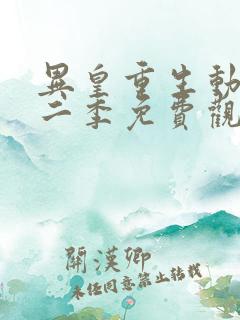 異皇重生動
二季免費觀
開漢卿
未經同意禁止轉載